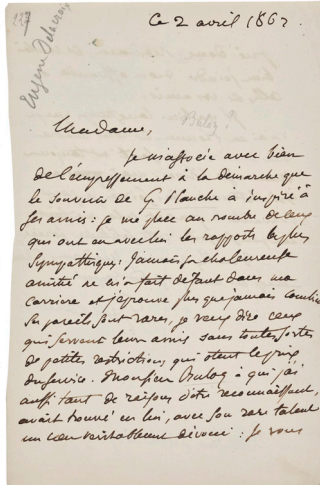 Eugène Delacroix
Ce 2 avril 1862.
Madame,
Je m'associe avec bien
de l'empressement à la démarche que
le souvenir de G. Planche a inspiré à
ses amis : je me place au nombre de ceux
qui ont eu avec lui les rapports les plus
sympathiques : Jamais sa chaleureuse
amitié ne m'a fait défaut dans ma
carrière et j'éprouve plus que jamais combien
ses pareils sont rares, je veux dire ceux
qui servent leurs amis sans toutes sortes
de petites restrictions qui ôtent le prix
du service. Monsieur Buloz à qui j'ai
aussi tant de raisons d'être reconnaissant,
avait trouvé en lui, avec son rare talent
un cœur véritablement dévoué : je vous